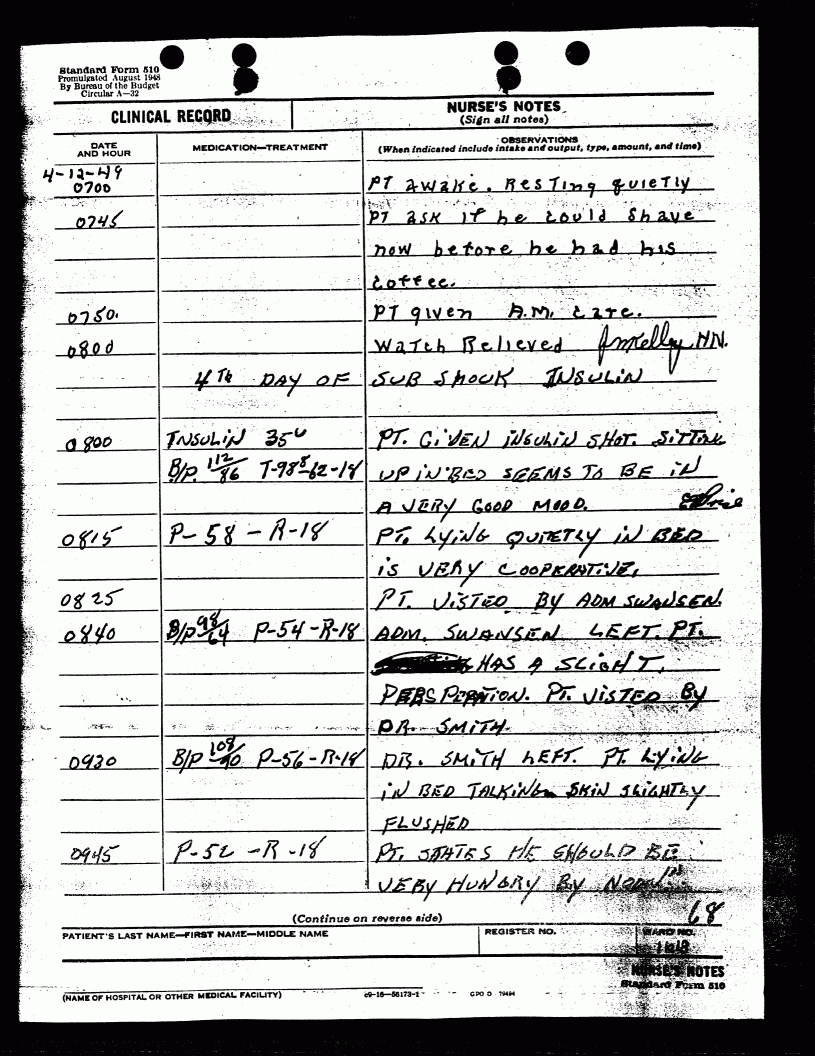 Standard Form 510
Promulgated August 1948
By Bureau of the Budget
Circular A—32
CLINICAL RECORD
NURSE'S NOTES
(Sign all notes)
DATE AND HOUR
MEDICATION—TREATMENT
OBSERVATIONS
(When indicated include intake and output, type, amount, and time)
4-12-49
0700 PT awake. Resting quietly
0745 PT ask if he could shave
now before he had his
coffee.
0750. PT given A.M. care.
0800 Watch Relieved HN.
4TH DAY OF SUB SHOCK INSULIN
0800 INSULIN 35U PT. GIVEN INSULIN SHOT. SITTING
B/P. 112/86 T-98⁸-62-18 UP IN BED SEEMS TO BE IN
A VERY GOOD MOOD.
0815 P-58-R-18 PT. LYING QUIETLY IN BED
IS VERY COOPERATIVE.
0825 PT. VISTED BY ADM SWANSEN.
0840 B/P 98/64 P-54-R-18 ADM. SWANSEN LEFT. PT.
HAS A SLIGHT.
PERSPERATION. PT. VISTED BY
DR. SMITH.
0930 B/P P-56-R-18 DR. SMITH LEFT. PT. LYING
IN BED TALKING SKIN SLIGHTLY
FLUSHED
0945 P-52-R-18 PT. STATES HE SHOULD BE
VERY HUNGRY BY
68
(Continue on reverse side)
PATIENT'S LAST NAME—FIRST NAME—MIDDLE NAME
REGISTER NO.
WARD NO.
NURSE'S NOTES
Standard Form 510
(NAME OF HOSPITAL OR OTHER MEDICAL FACILITY)
c9—16—56173-1
GPO